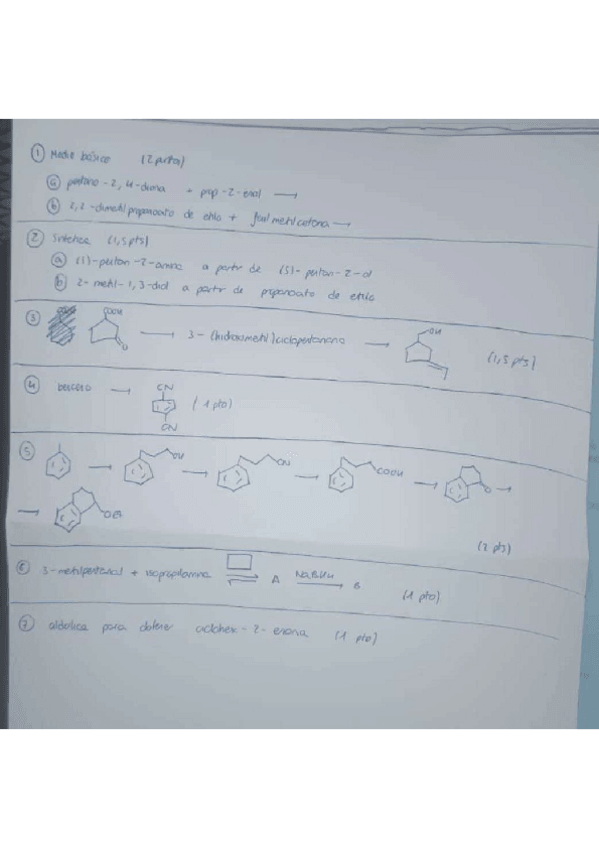 ① Medio básico (2 puntos)
ⓐ pentano-2,4-diona + prop-2-enal →
ⓑ 2,2-dimetilpropanoato de etilo + fenilmetilcetona →
② Síntesis (1,5 pts)
ⓐ (1)-pentan-2-amina a partir de (S)-pentan-2-ol
ⓑ 2-metil-1,3-diol a partir de propanoato de etilo
③ COOH O → 3-(hidroximetil)ciclopentanona → OH (1,5 pts)
④ benceno → CN CN (1 pto)
⑤ → OH → CN → COOH → O →
→ OEt
(2 pts)
⑥ 3-metilpentanal + isopropilamina ⇌ A NaBH4 → B
(1 pto)
⑦ aldólica para obtener ciclohex-2-enona (1 pto)